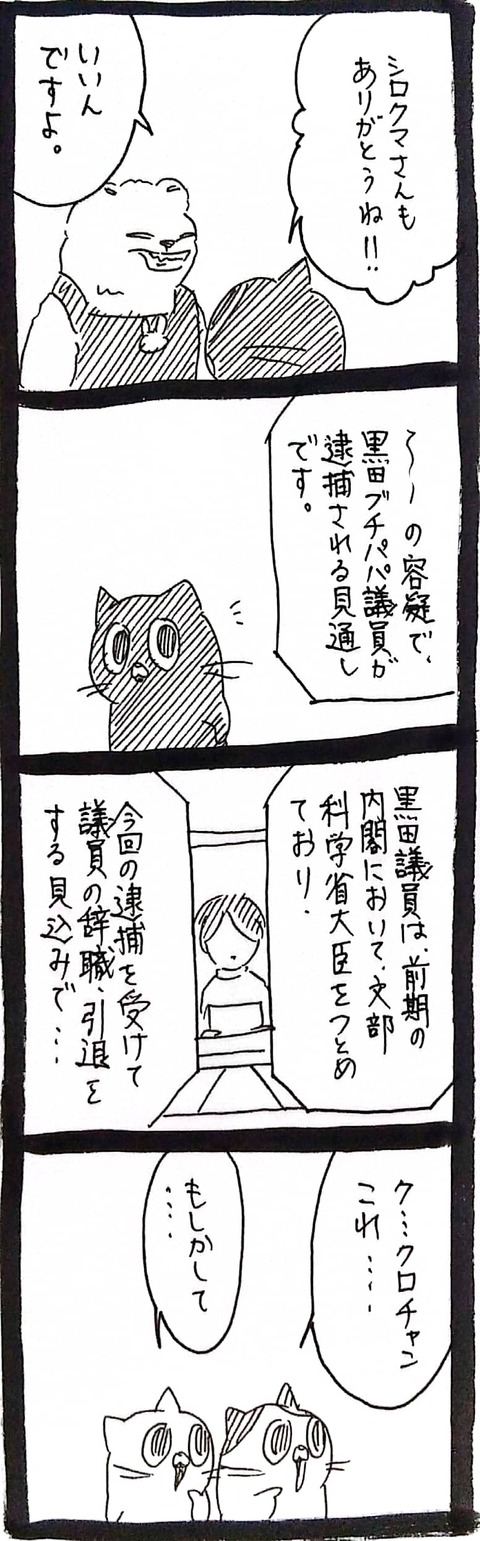 シロクマさんも
ありがとうね!!
いいん
ですよ。
〜ーの容疑で、
黒田ブチパパ議員が
逮捕される見通し
です。
黒田議員は、前期の
内閣において、文部
科学省大臣をつとめ
ており、
今回の逮捕を受けて
議員の辞職、引退を
する見込みで…
ク…クロチャン
これ……
もしかして
……